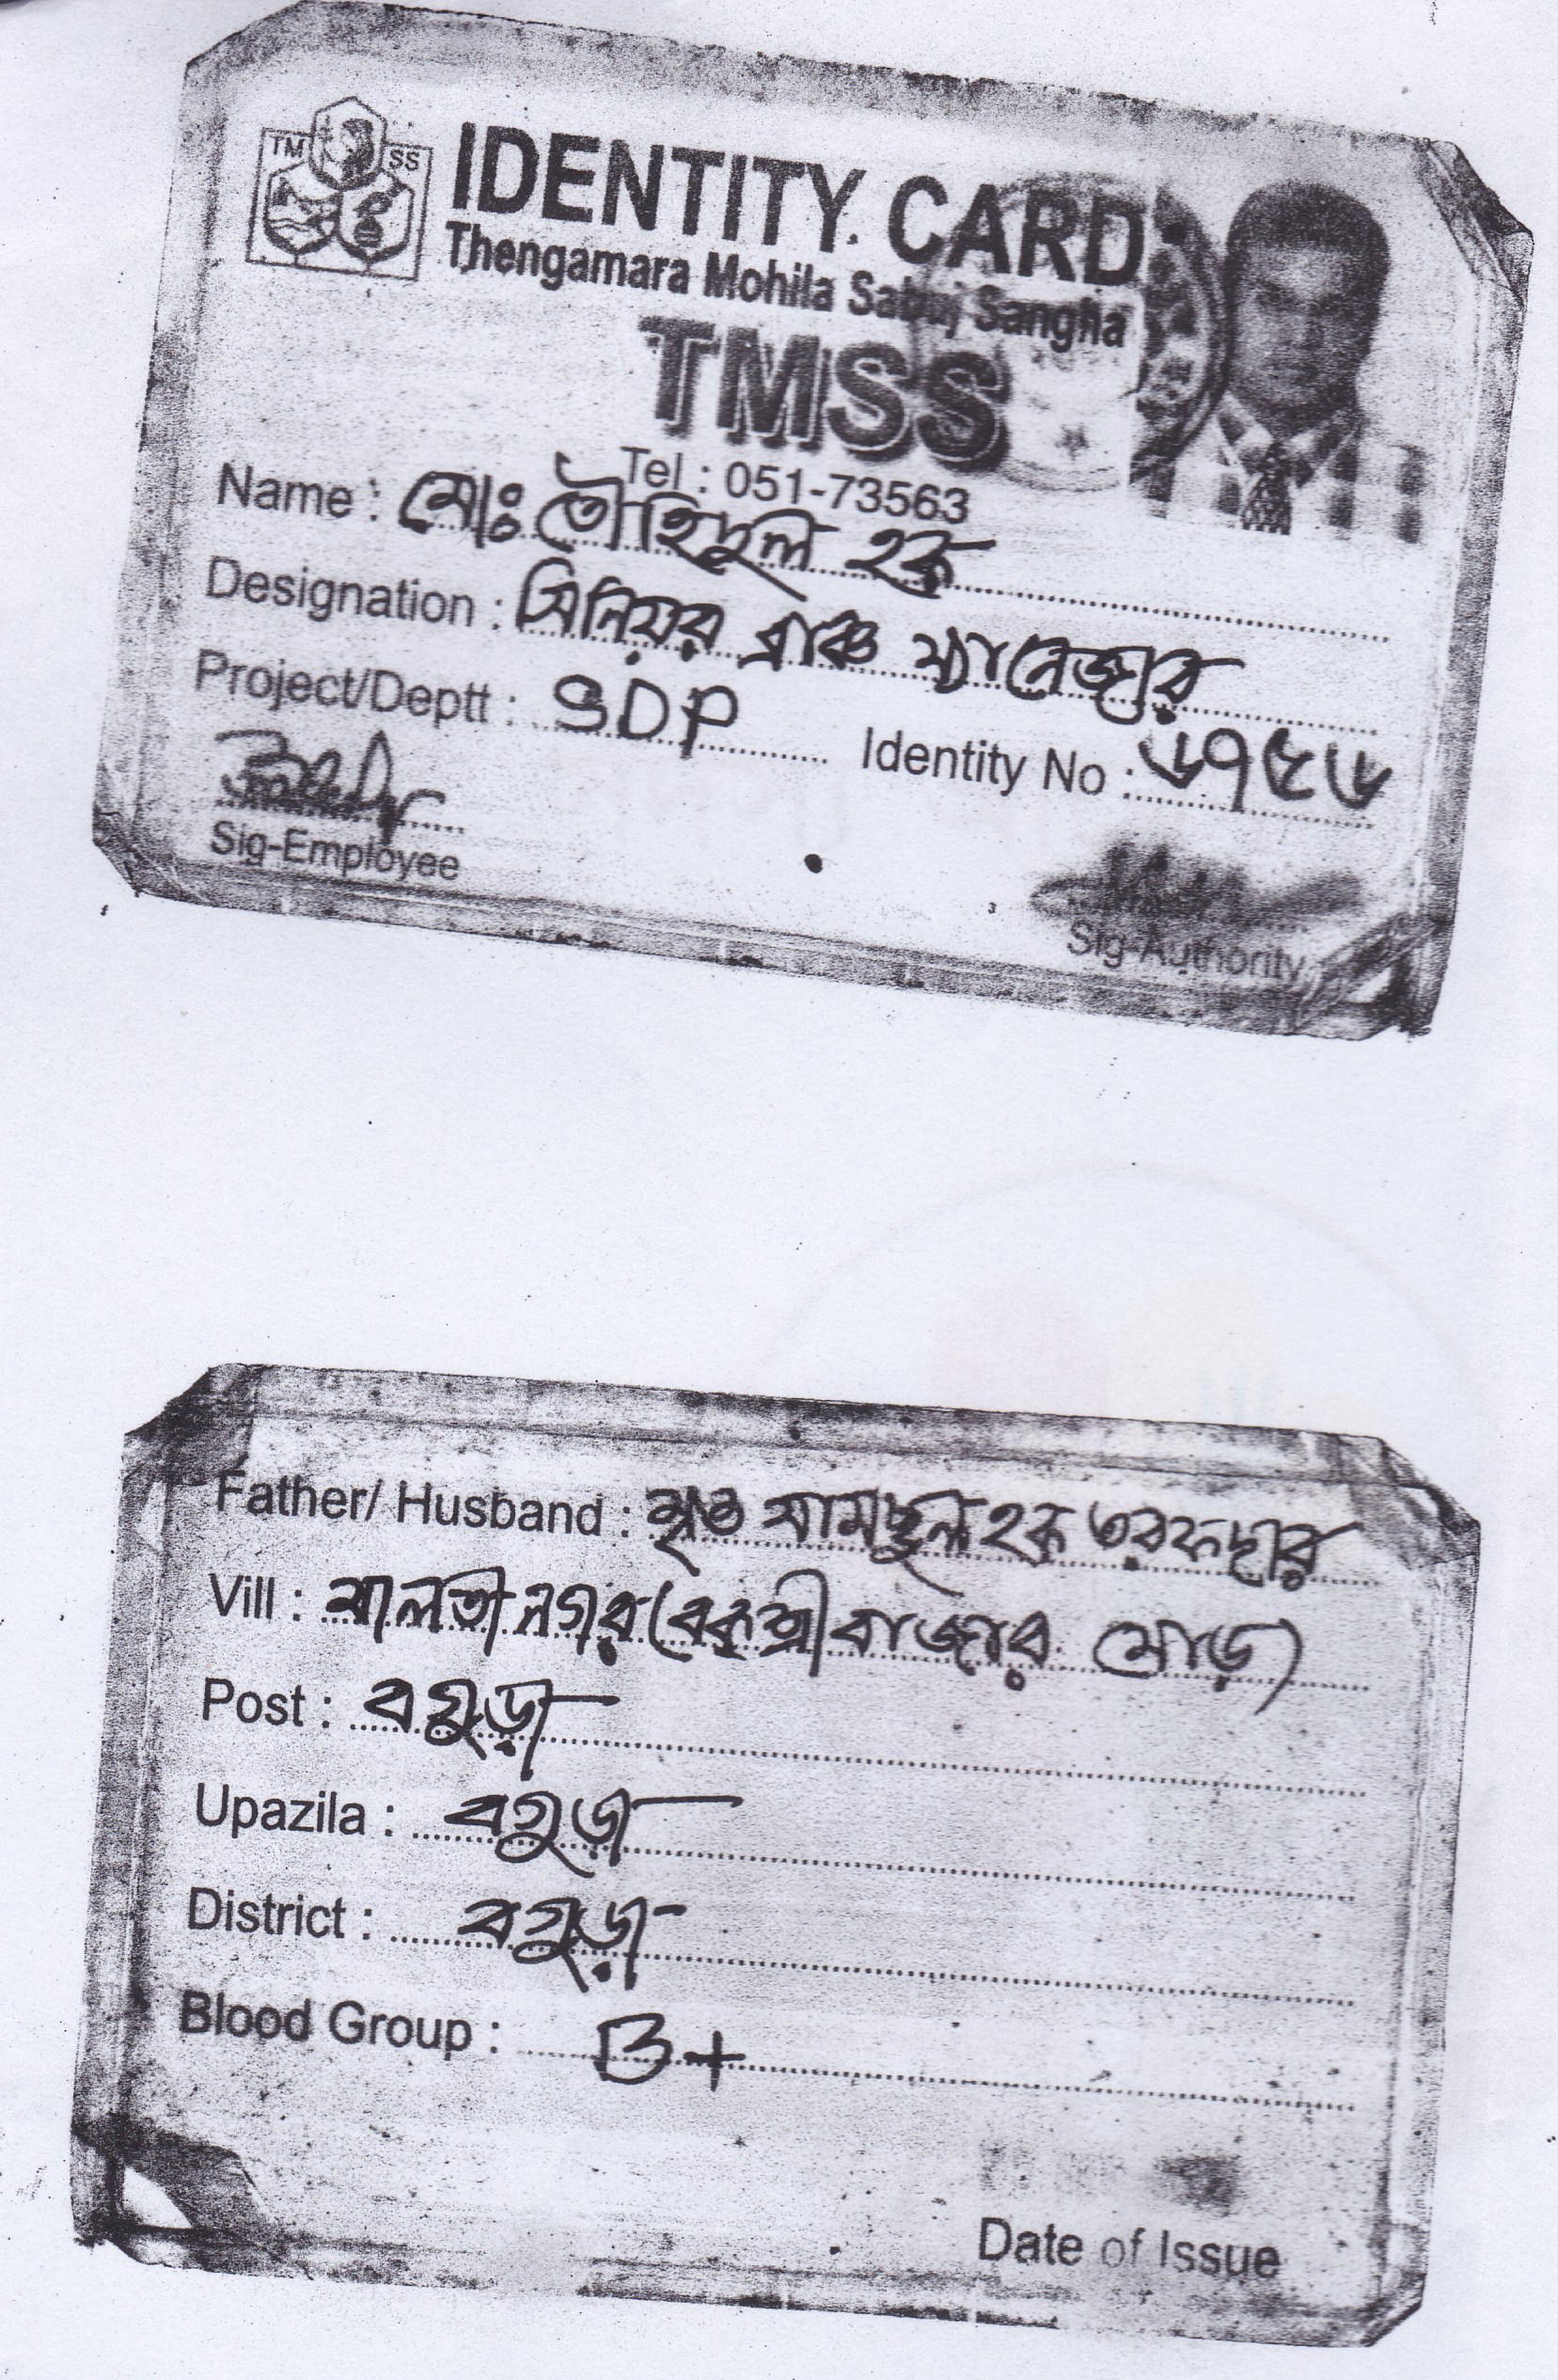 TM SS
IDENTITY CARD
Thengamara Mohila Sabuj Sangha
TMSS
Tel : 051-73563
Name : মোঃ তৌহিদুল হক
Designation : সিনিয়র ব্রাঞ্চ ম্যানেজার
Project/Deptt : SDP Identity No : ৬৭৫৬
Sig-Employee
Sig-Authority
Father/ Husband : মৃত সামছুল হক তরফদার
Vill : মালতীনগর (বকশীবাজার মোড়)
Post : বগুড়া
Upazila : বগুড়া
District : বগুড়া
Blood Group : B+
Date of Issue